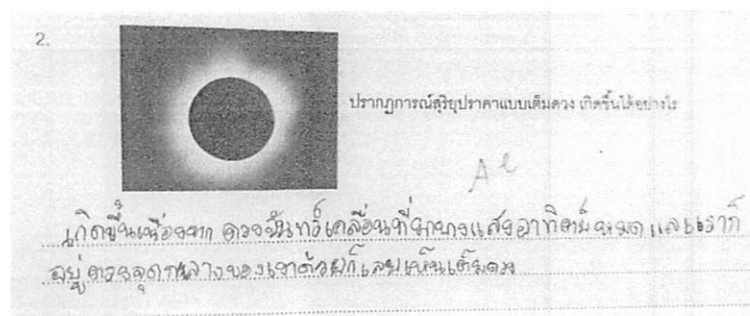 2.
ปรากฏการณ์สุริยุปราคาแบบเต็มดวง เกิดขึ้นได้อย่างไร
เกิดขึ้นเนื่องจาก ดวงจันทร์เคลื่อนที่มาบางแสงอาทิตย์หมด และเราก็
อยู่ตรงจุดกลางของเงาด้วยก็เลยเห็นเต็มดวง